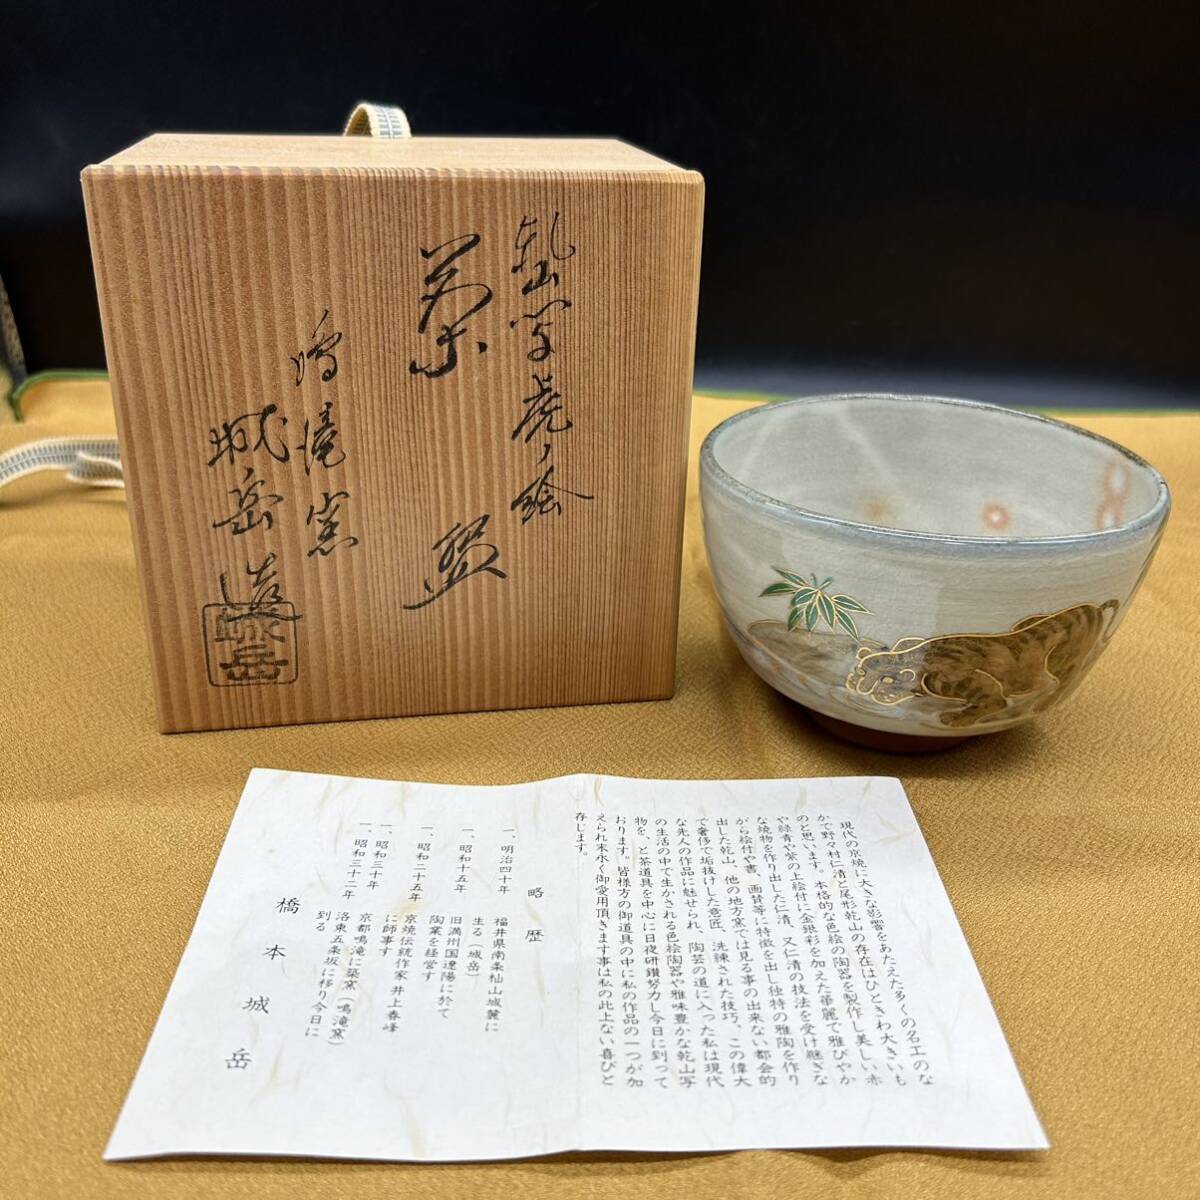 乾山写虎ノ絵
茶盌
鳴滝窯
城岳造
現代の京焼に大きな影響をあたえた多くの名工のな
かで野々村仁清と尾形乾山の存在はひときわ大きいも
のと思います。本格的な色絵の陶器を製作し美しい赤
や緑青や紫の上絵付に金銀彩を加えた華麗で雅びやか
な焼物を作り出した仁清、又仁清の技法を受け継ぎな
がら絵付や書、画賛等に特徴を出し独特の雅陶を作り
出した乾山、他の地方窯では見る事の出来ない都会的
で奢侈で垢抜けした意匠、洗練された技巧、この偉大
な先人の作品に魅せられ、陶芸の道に入った私は現代
の生活の中で生かされる色絵陶器や雅味豊かな乾山写
物を、と茶道具を中心に日夜研鑽努力し今日に到って
おります。皆様方の御道具の中に私の作品の一つが加
えられ末永く御愛用頂きます事は私の此上ない喜びと
存じます。
略歴
一、明治四十年 福井県南条杣山城麓に
生る(城岳)
一、昭和十五年 旧満州国遼陽に於て
陶業を経営す
一、昭和二十五年 京焼伝統作家井上春峰
に師事す
一、昭和三十年 京都鳴滝に築窯(鳴滝窯)
一、昭和三十二年 洛東五条坂に移り今日に
到る
橋本城岳